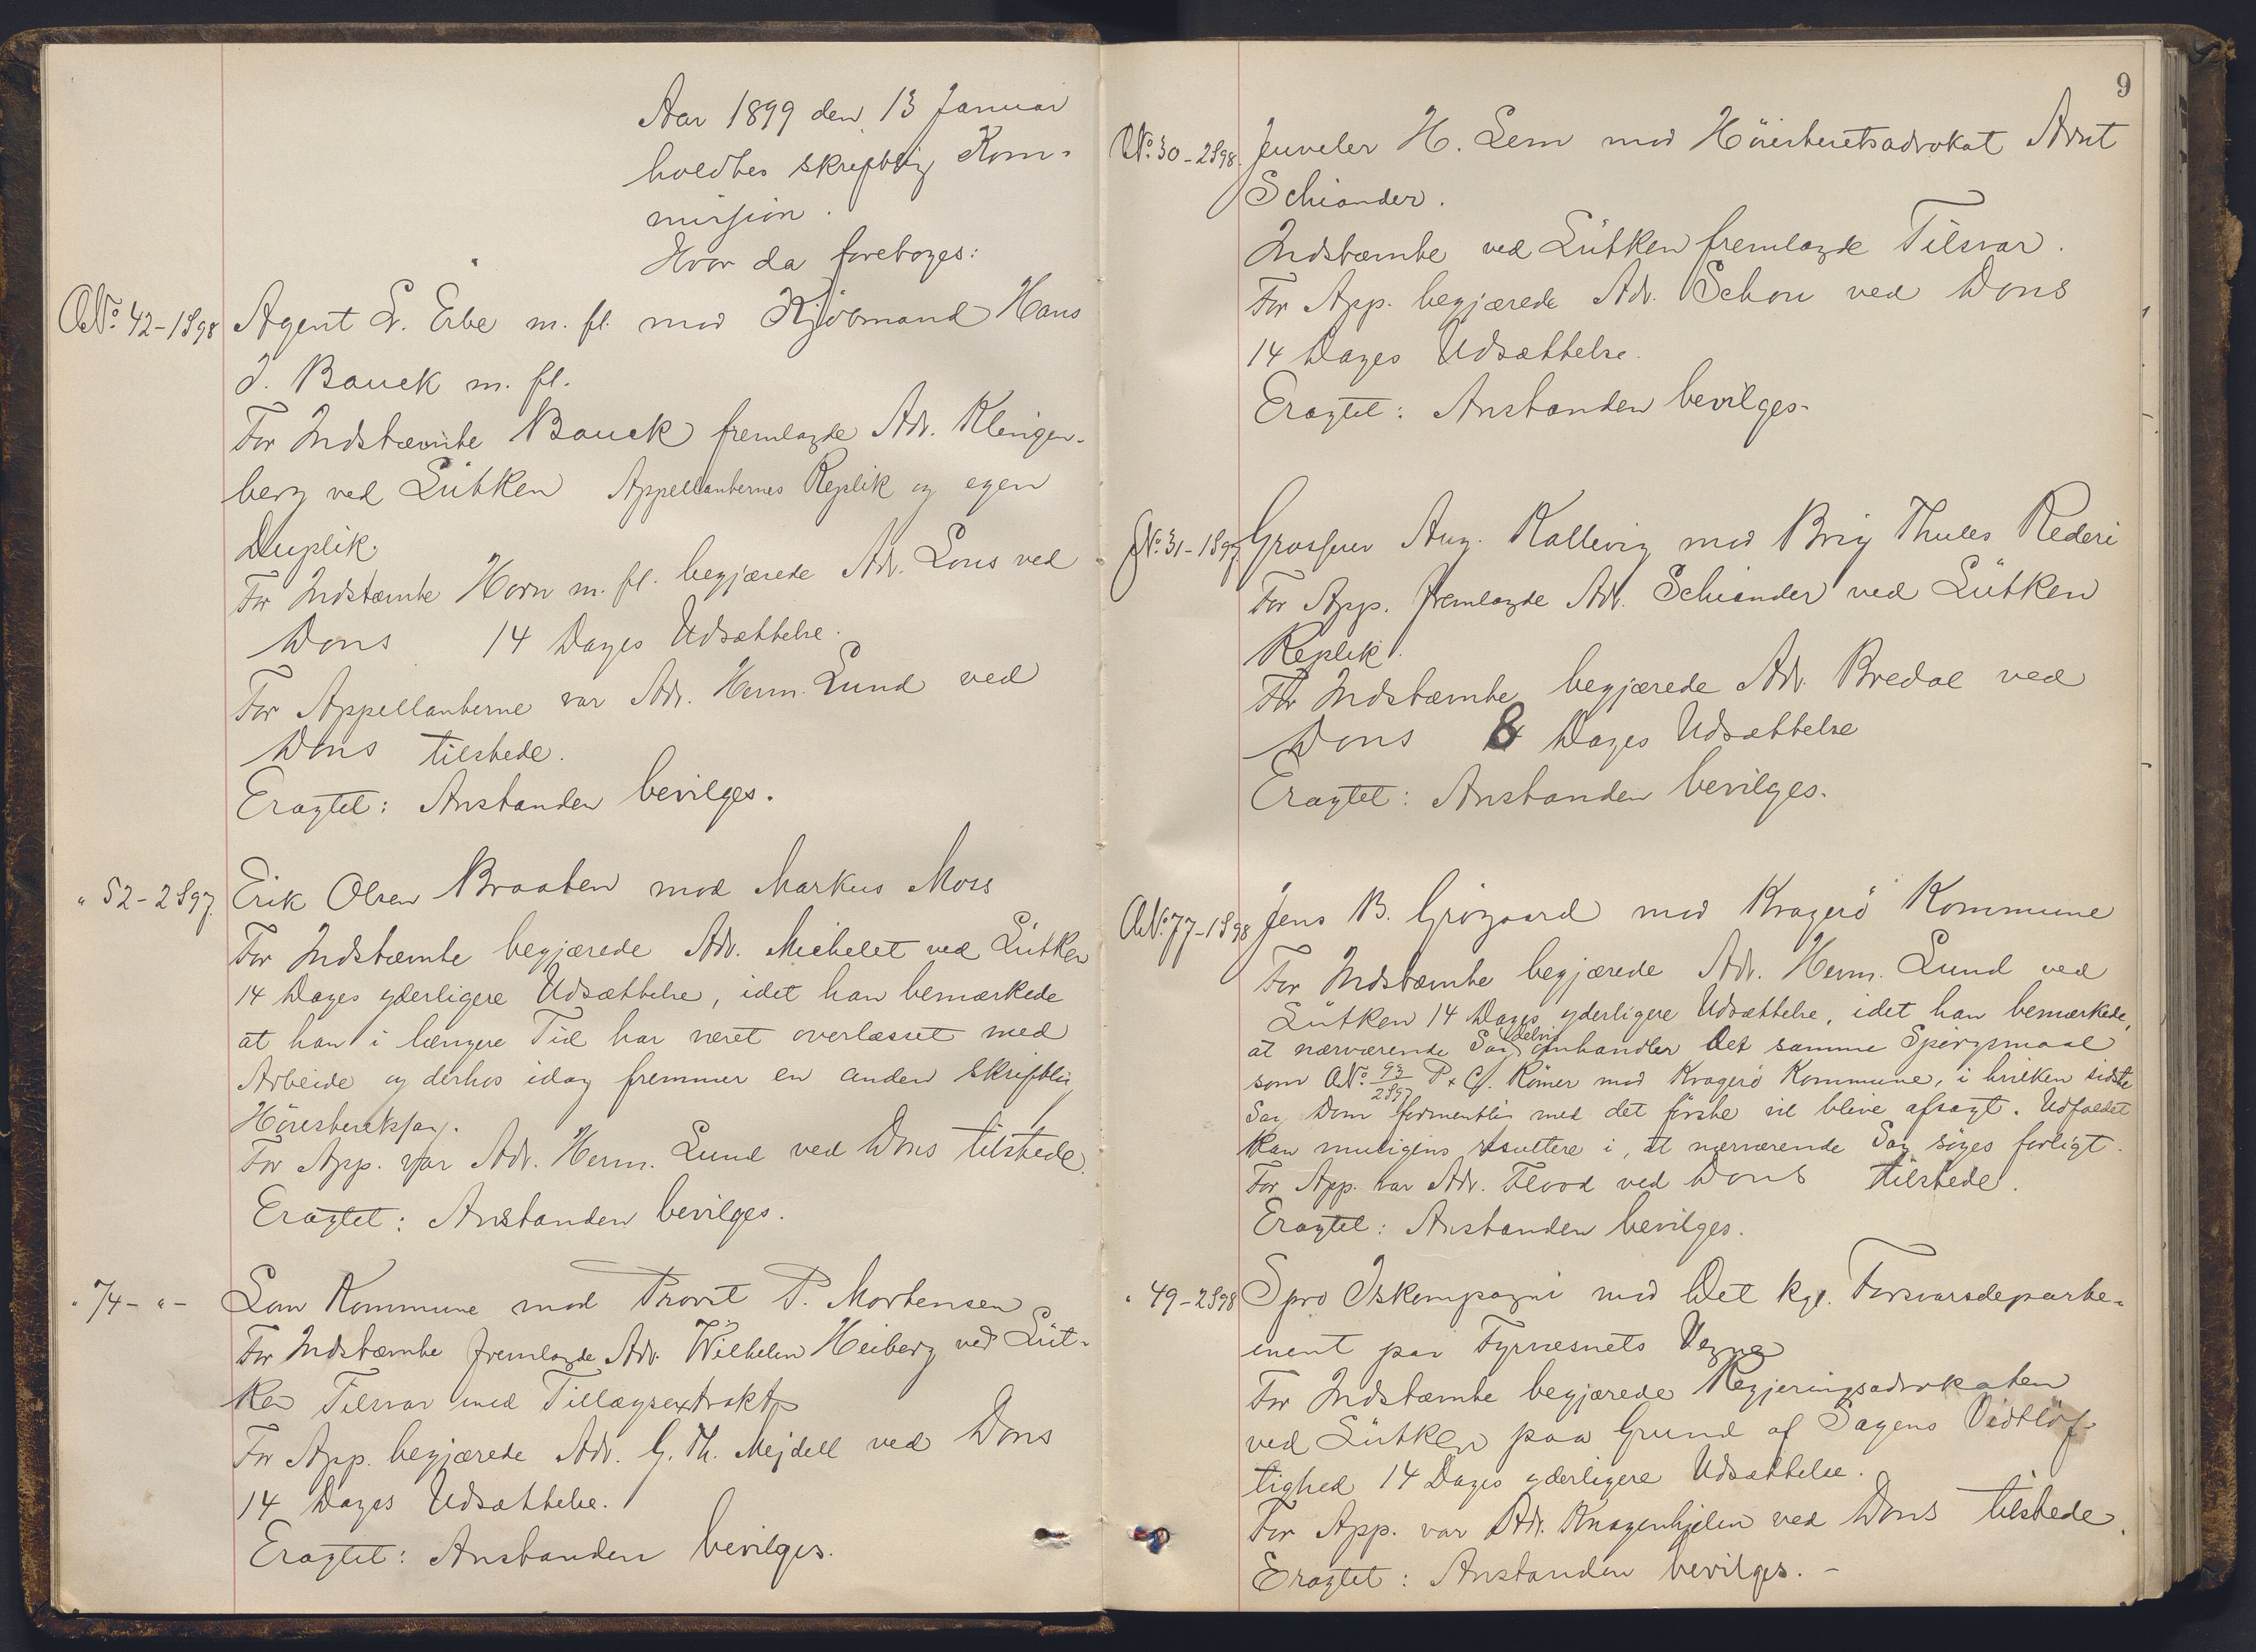 Aar 1899 den 13 Januar
holdtes skriftlig Kom-
mission.
Hvor da foretoges:
LNo. 42-1898 Agent L. Erbe m. fl. mod Kjöbmand Hans
J. Bauck m. fl.
For Indstævnte Bauck fremlagde Adv. Klingen-
berg ved Lütken Appellanternes Replik og egen
Duplik.
For Indstævnte Horn m. fl. begjærede Adv. Lous ved
Dons 14 Dages Udsættelse.
For Appellanterne var Adv. Herm. Lund ved
Dons tilstede.
Eragtet: Anstanden bevilges.
" 52-2897. Erik Olsen Braaten mod Markus Moss
For Indstævnte begjærede Adv. Michelet ved Lütken
14 Dages yderligere Udsættelse, idet han bemærkede
at han i længere Tid har været overlæsset med
Arbeide og derhos idag fremmer en anden skriftlig
Höiesteretssag.
For App. var Adv. Herm. Lund ved Dons tilstede.
Eragtet: Anstanden bevilges.
" 74- " - Lom Kommune mod Provst P. Mortensen
For Indstævnte fremlagde Adv. Wilhelm Heiberg ved Lüt-
ken Tilsvar med Tillægsextrakt
For App. begjærede Adv. G. Th. Mejdell ved Dons
14 Dages Udsættelse.
Eragtet: Anstanden bevilges.
9
LNo. 30-2898. Juveler H. Lem mod Höiesteretsadvokat Arnt
Schiander.
Indstævnte ved Lütken fremlagde Tilsvar.
For App. begjærede Adv. Schou ved Dons
14 Dages Udsættelse.
Eragtet: Anstanden bevilges.
No. 31-1897. Grosserer Aug. Kallevig mod Brig Thules Rederi
For App. fremlagde Adv. Schiander ved Lütken
Replik.
For Indstævnte begjærede Adv. Bredal ved
Dons 8 Dages Udsættelse
Eragtet: Anstanden bevilges.
LNo. 77-1898 Jens B. Grögaard mod Kragerö Kommune
For Indstævnte begjærede Adv. Herm. Lund ved
Lütken 14 Dages yderligere Udsættelse, idet han bemærkede,
at nærværende Sag delvis omhandler det samme Spörgsmaal
som LNo. 93/2897 P. & Cf. Römer mod Kragerö Kommune, i hvilken sidste
Sag Dom formentlig med det förste vil blive afsagt. Udfaldet
kan muligens resultere i, at nærværende Sag söges forligt.
For App. var Adv. Flood ved Dons tilstede.
Eragtet: Anstanden bevilges.
" 49-2898 Spro Iskompagni mod Det kgl. Forsvarsdeparte-
ment paa Fyrvæsnets Vegne
For Indstævnte begjærede Regjeringsadvokaten
ved Lütken paa Grund af Sagens Vidtlöf-
tighed 14 Dages yderligere Udsættelse.
For App. var Adv. Knagenhjelm ved Dons tilstede.
Eragtet: Anstanden bevilges. -